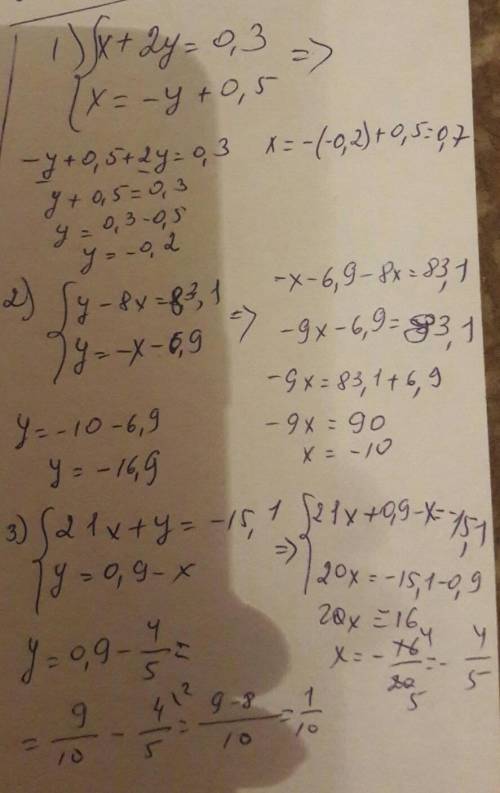 1) { x + 2y = 0,3 =>
x = -y + 0,5
-y + 0,5 + 2y = 0,3
y + 0,5 = 0,3
y = 0,3 - 0,5
y = -0,2
x = -(-0,2) + 0,5 = 0,7
2) { y - 8x = 83,1 =>
y = -x - 6,9
-x - 6,9 - 8x = 83,1
-9x - 6,9 = 83,1
-9x = 83,1 + 6,9
-9x = 90
x = -10
y = -10 - 6,9
y = -16,9
3) { 21x + y = -15,1 =>
y = 0,9 - x
{ 21x + 0,9 - x = -15,1
20x = -15,1 - 0,9
20x = 16
x = - 16/20 = - 4/5
y = 0,9 - 4/5 =
= 9/10 - 4/5 = 9-8/10 = 1/10